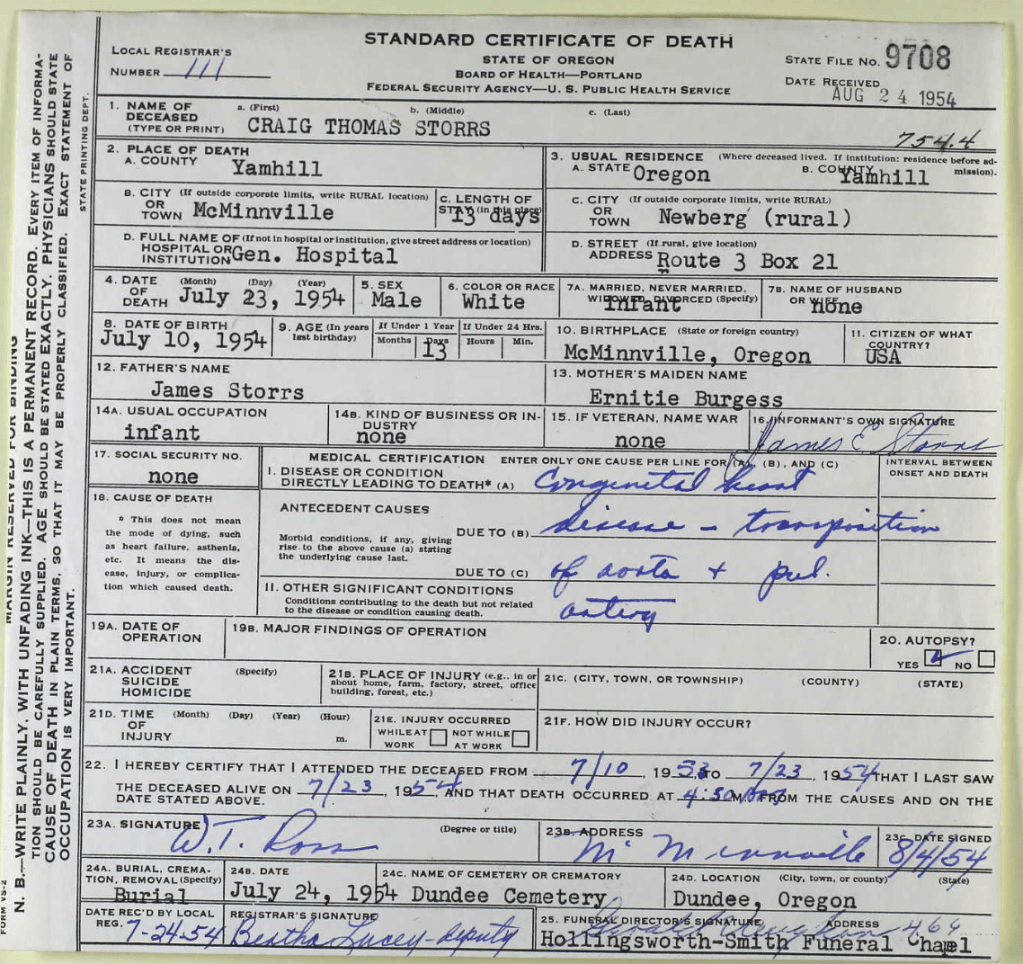 STANDARD CERTIFICATE OF DEATH
STATE OF OREGON
BOARD OF HEALTH—PORTLAND
FEDERAL SECURITY AGENCY—U. S. PUBLIC HEALTH SERVICE
LOCAL REGISTRAR'S
NUMBER 111
STATE FILE NO. 9708
DATE RECEIVED
AUG 24 1954
1. NAME OF DECEASED (TYPE OR PRINT) a. (First) b. (Middle) c. (Last)
CRAIG THOMAS STORRS
754.4
2. PLACE OF DEATH
A. COUNTY Yamhill
3. USUAL RESIDENCE (Where deceased lived. If institution: residence before admission).
A. STATE Oregon B. COUNTY Yamhill
B. CITY (If outside corporate limits, write RURAL location) OR TOWN McMinnville
C. LENGTH OF STAY (in this place) 13 days
C. CITY (If outside corporate limits, write RURAL) OR TOWN Newberg (rural)
D. FULL NAME OF (If not in hospital or institution, give street address or location) HOSPITAL OR INSTITUTION Gen. Hospital
D. STREET (If rural, give location) ADDRESS Route 3 Box 21
4. DATE OF DEATH (Month) (Day) (Year) July 23, 1954
5. SEX Male
6. COLOR OR RACE White
7A. MARRIED, NEVER MARRIED, WIDOWED, DIVORCED (Specify) Infant
7B. NAME OF HUSBAND OR WIFE none
8. DATE OF BIRTH July 10, 1954
9. AGE (In years last birthday) If Under 1 Year Months Days 13 If Under 24 Hrs. Hours Min.
10. BIRTHPLACE (State or foreign country) McMinnville, Oregon
11. CITIZEN OF WHAT COUNTRY? USA
12. FATHER'S NAME James Storrs
13. MOTHER'S MAIDEN NAME Ernitie Burgess
14A. USUAL OCCUPATION infant
14B. KIND OF BUSINESS OR INDUSTRY none
15. IF VETERAN, NAME WAR none
16. INFORMANT'S OWN SIGNATURE James E Storrs
17. SOCIAL SECURITY NO. none
MEDICAL CERTIFICATION ENTER ONLY ONE CAUSE PER LINE FOR (A), (B), AND (C)
INTERVAL BETWEEN ONSET AND DEATH
18. CAUSE OF DEATH
* This does not mean the mode of dying, such as heart failure, asthenia, etc. It means the disease, injury, or complication which caused death.
I. DISEASE OR CONDITION DIRECTLY LEADING TO DEATH* (A) Congenital heart
ANTECEDENT CAUSES
Morbid conditions, if any, giving rise to the above cause (a) stating the underlying cause last.
DUE TO (B) disease – transposition
DUE TO (C) of aorta + pul.
II. OTHER SIGNIFICANT CONDITIONS artery
Conditions contributing to the death but not related to the disease or condition causing death.
19A. DATE OF OPERATION
19B. MAJOR FINDINGS OF OPERATION
20. AUTOPSY?
YES ✓ NO
21A. ACCIDENT SUICIDE HOMICIDE (Specify)
21B. PLACE OF INJURY (e.g., in or about home, farm, factory, street, office building, forest, etc.)
21C. (CITY, TOWN, OR TOWNSHIP) (COUNTY) (STATE)
21D. TIME OF INJURY (Month) (Day) (Year) (Hour) m.
21E. INJURY OCCURRED WHILE AT WORK NOT WHILE AT WORK
21F. HOW DID INJURY OCCUR?
22. I HEREBY CERTIFY THAT I ATTENDED THE DECEASED FROM 7/10, 1953, TO 7/23, 1954 THAT I LAST SAW
THE DECEASED ALIVE ON 7/23, 1954, AND THAT DEATH OCCURRED AT 4:30 M., FROM THE CAUSES AND ON THE
DATE STATED ABOVE.
23A. SIGNATURE W.T. Ross (Degree or title)
23B. ADDRESS McMinnville
23C. DATE SIGNED 8/4/54
24A. BURIAL, CREMATION, REMOVAL (Specify) Burial
24B. DATE July 24, 1954
24C. NAME OF CEMETERY OR CREMATORY Dundee Cemetery
24D. LOCATION (City, town, or county) (State) Dundee, Oregon
DATE REC'D BY LOCAL REG. 7-24-54
REGISTRAR'S SIGNATURE Bertha Lucey-deputy
25. FUNERAL DIRECTOR'S SIGNATURE ADDRESS 469
Hollingsworth-Smith Funeral Chapel
MARGIN RESERVED FOR BINDING
N. B.—WRITE PLAINLY, WITH UNFADING INK—THIS IS A PERMANENT RECORD. EVERY ITEM OF INFORMATION SHOULD BE CAREFULLY SUPPLIED. AGE SHOULD BE STATED EXACTLY. PHYSICIANS SHOULD STATE CAUSE OF DEATH IN PLAIN TERMS, SO THAT IT MAY BE PROPERLY CLASSIFIED. EXACT STATEMENT OF OCCUPATION IS VERY IMPORTANT.
STATE PRINTING DEPT.
FORM VS-2